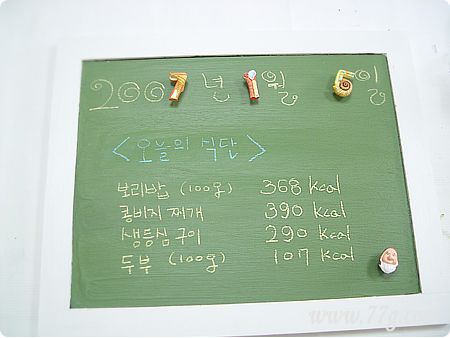 2007년 1월 6일
<오늘의 식단>
보리밥 (100g) 368 kcal
콩비지 찌개 390 kcal
생등심 구이 290 kcal
두부 (100g) 107 kcal